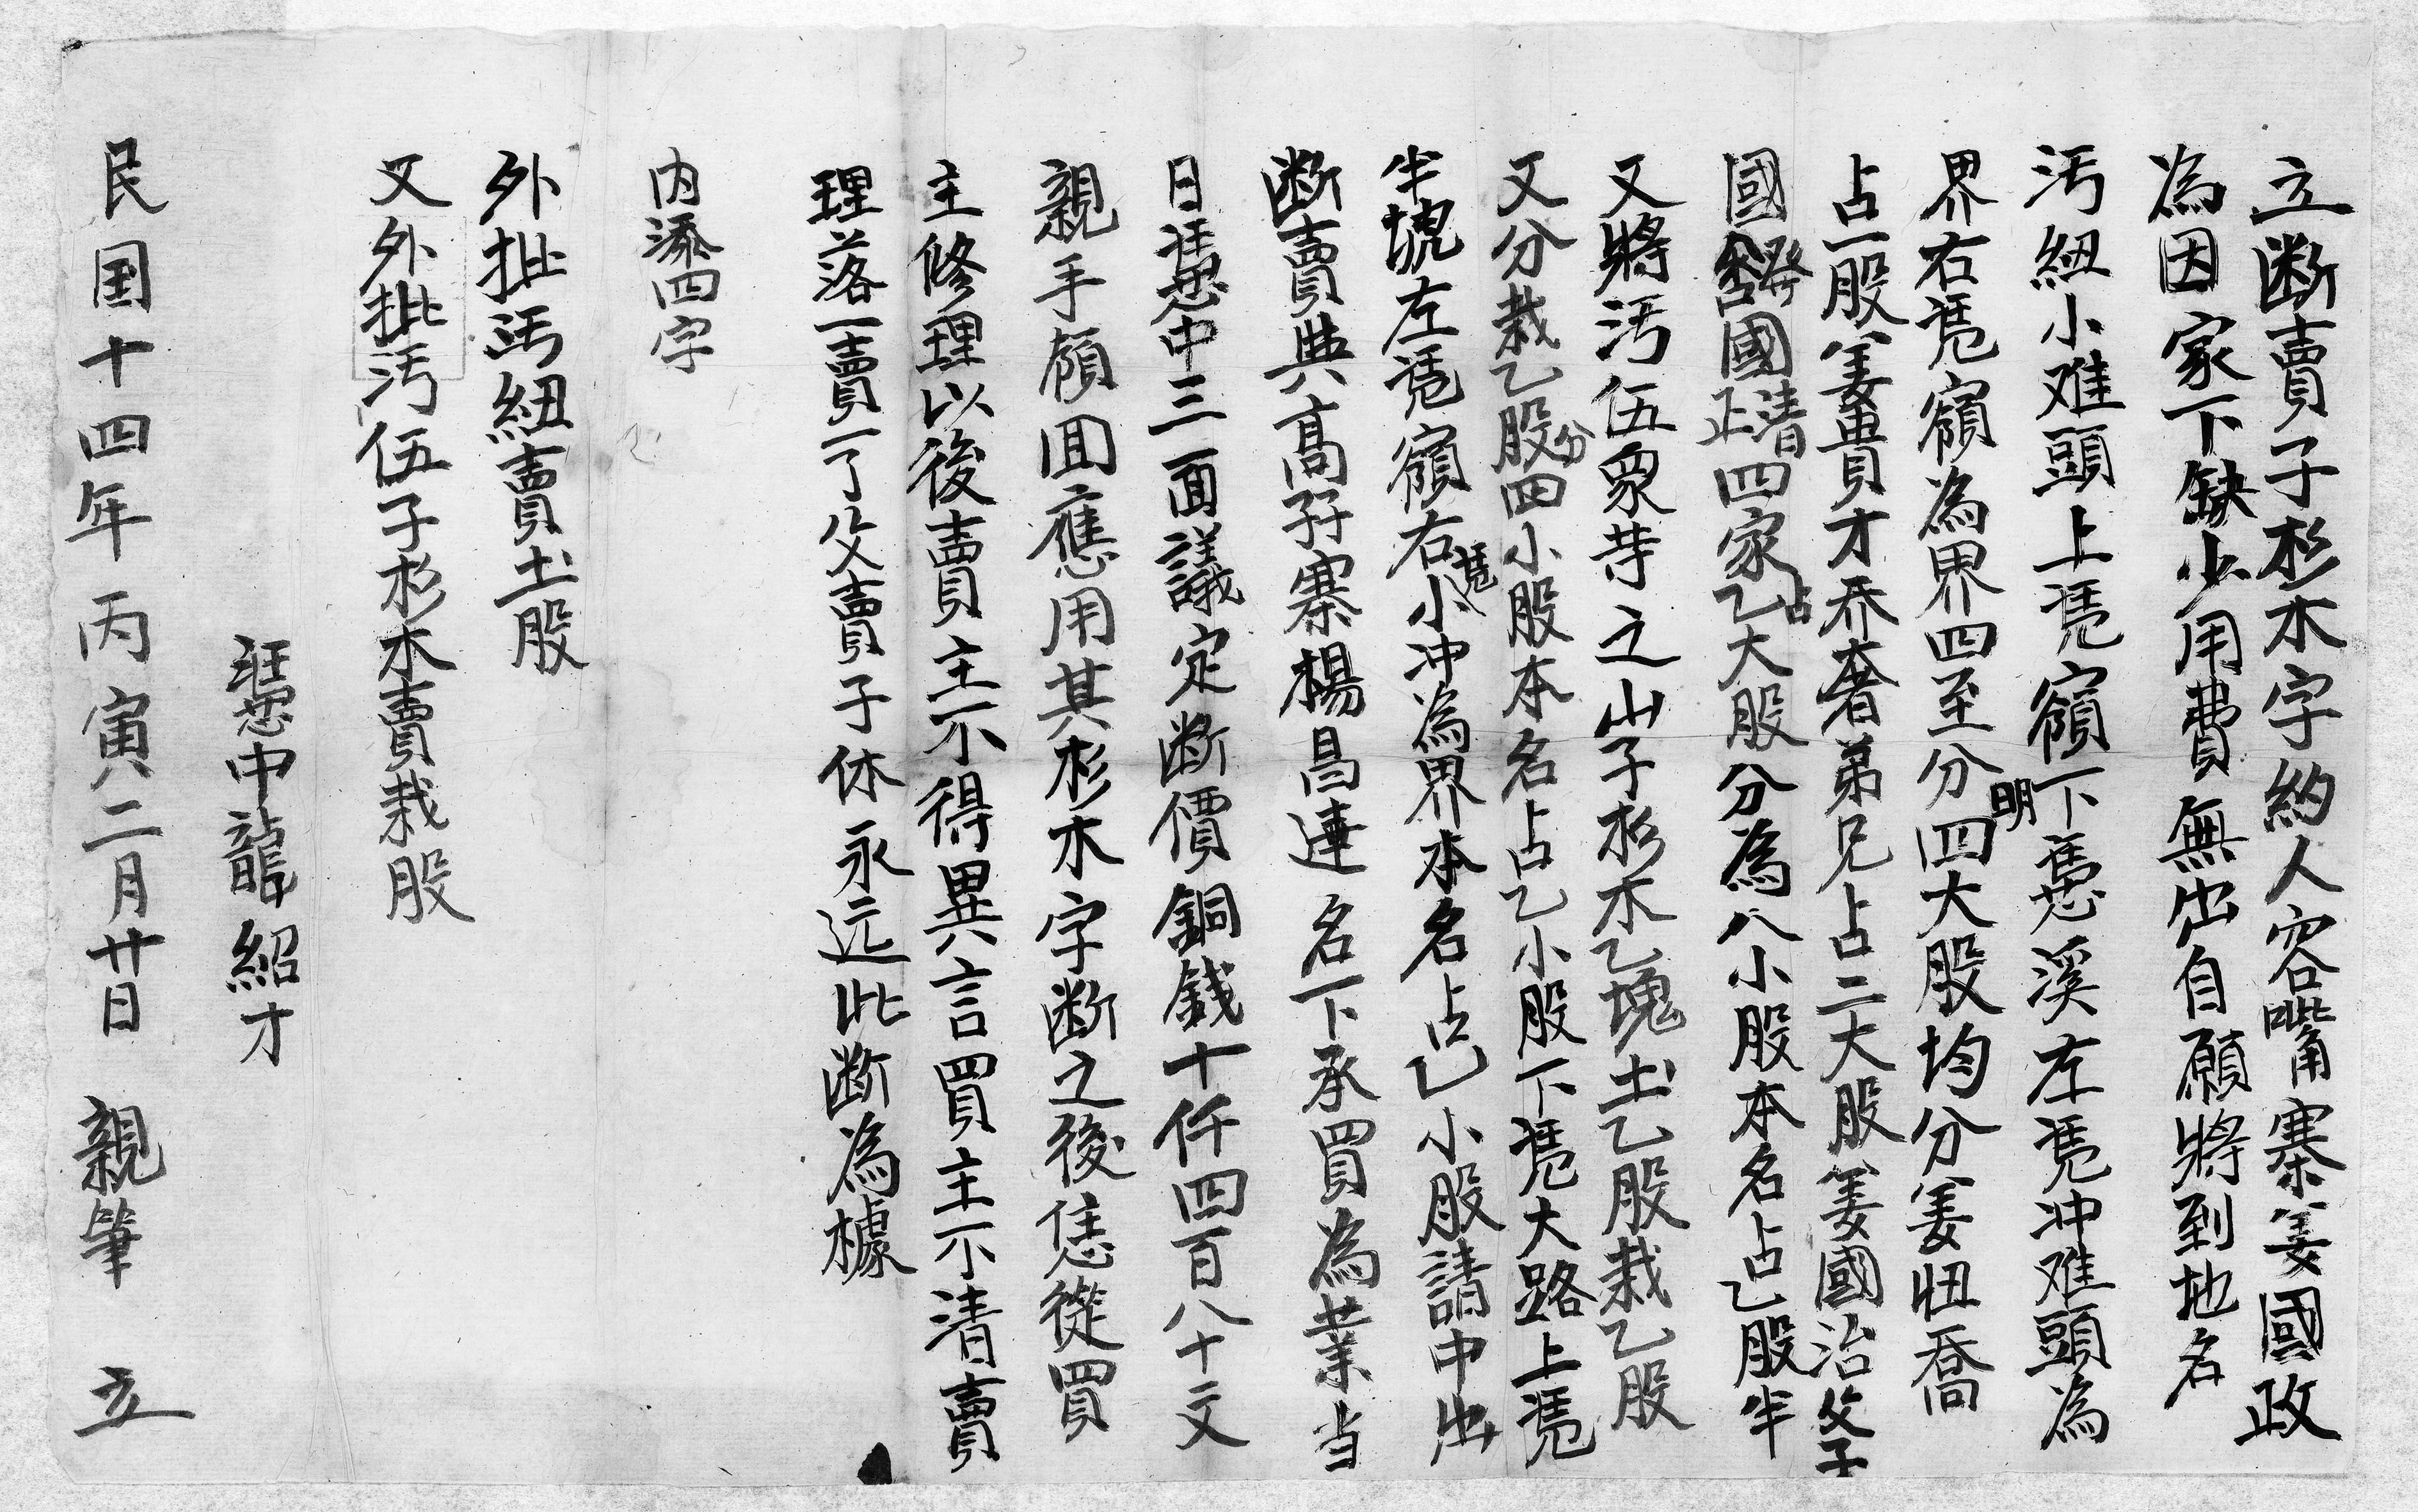 立断賣子杉木字約人容嘴寨姜國政
為因家下缺少用費無出自願將到地名
汚紐小难頭上凴嶺下憑溪左凴冲难頭為
界右凴嶺為界四至分明四大股均分姜杻喬
占一股姜貴才乔奢弟兄占二大股姜國治父子
國發國清國正四家占乙大股分為八小股本名占乙股半
又將汚伍衆芽之山子杉木乙塊土乙股栽乙股
又分栽乙股分四小股本名占乙小股下凴大路上凴
半塊左凴嶺右凴小冲為界本名占乙小股請中出
断賣典高孖寨楊昌連名下承買為業当
日憑中三面議定断價銅錢十仟四百八十文
親手領囬應用其杉木字断之後恁從買
主修理以後賣主不得異言買主不清賣
理落一賣一了父賣子休永远此断為據
内添四字
外批汚紐賣土股
又外批汚伍子杉木賣栽股
憑中龍紹才
民国十四年丙寅二月廿日 親筆 立